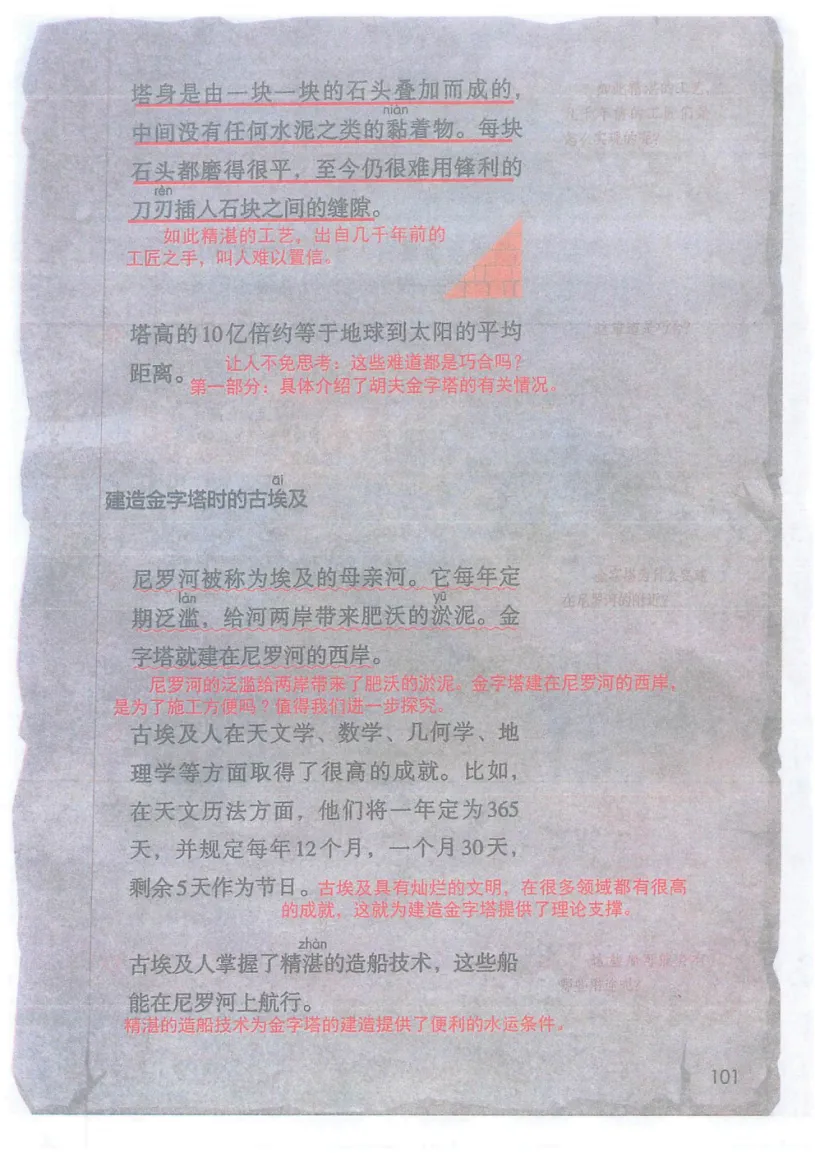 塔身是由一块一块的石头叠加而成的，
nián
中间没有任何水泥之类的黏着物。每块
石头都磨得很平，至今仍很难用锋利的
rèn
刀刃插入石块之间的缝隙。
如此精湛的工艺，出自几千年前的
工匠之手，叫人难以置信。
塔高的10亿倍约等于地球到太阳的平均
距离。
让人不免思考：这些难道都是巧合吗？
第一部分：具体介绍了胡夫金字塔的有关情况。
āi
建造金字塔时的古埃及
尼罗河被称为埃及的母亲河。它每年定
làn
yū
期泛滥，给河两岸带来肥沃的淤泥。金
字塔就建在尼罗河的西岸。
在尼罗河的附近？
尼罗河的泛滥给两岸带来了肥沃的淤泥。金字塔建在尼罗河的西岸，
是为了施工方便吗？值得我们进一步探究。
古埃及人在天文学、数学、几何学、地
理学等方面取得了很高的成就。比如，
在天文历法方面，他们将一年定为365
天，并规定每年12个月，一个月30天，
剩余5天作为节日。
古埃及具有灿烂的文明，在很多领域都有很高
的成就，这就为建造金字塔提供了理论支撑。
zhàn
古埃及人掌握了精湛的造船技术，这些船
能在尼罗河上航行。
精湛的造船技术为金字塔的建造提供了便利的水运条件。
101